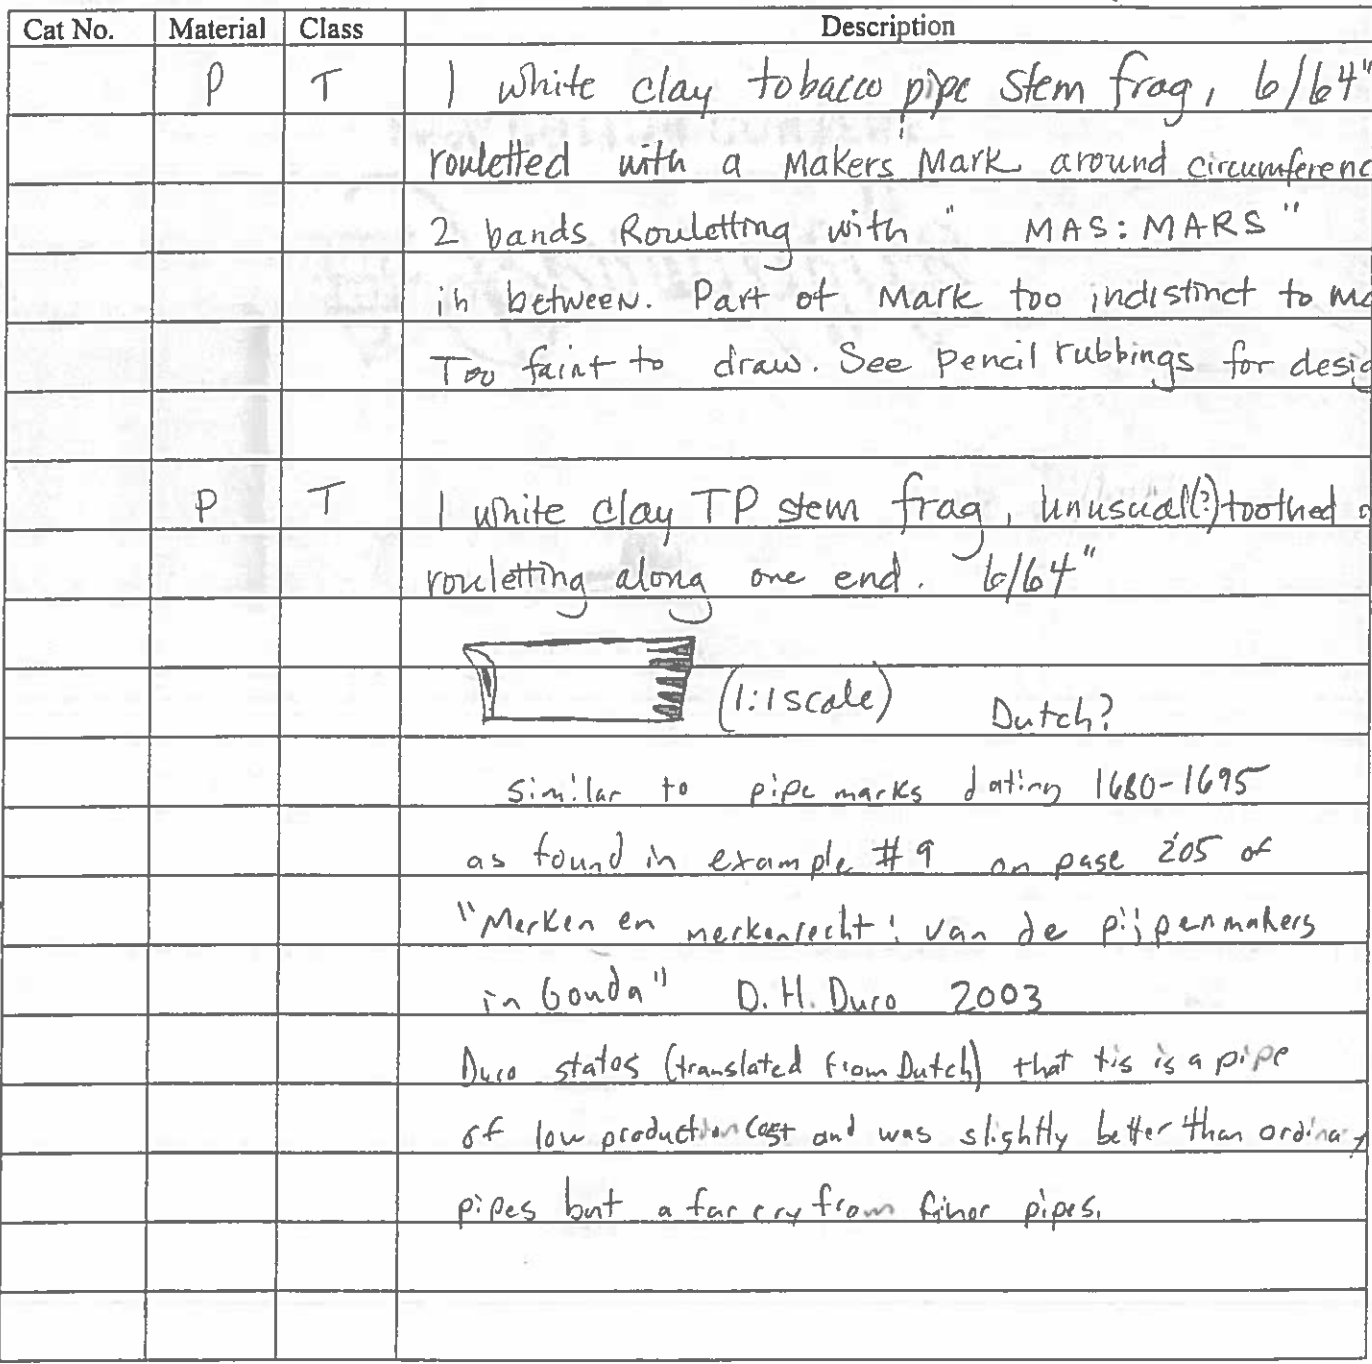 Cat No. Material Class Description
P T 1 white clay tobacco pipe stem frag, 6/64"
rouletted with a Makers Mark around circumferenc
2 bands Rouletting with " MAS: MARS "
in between. Part of Mark too indistinct to ma
Too faint to draw. See pencil rubbings for desig
P T 1 white clay TP stem frag, unusual(?) toothed
rouletting along one end. 6/64"
(1:1 scale) Dutch?
similar to pipe marks dating 1680-1695
as found in example #9 on page 205 of
"Merken en merkenrecht: van de pijpenmakers
in Gouda" D.H. Duco 2003
Duco states (translated from Dutch) that tis is a pipe
of low production cost and was slightly better than ordinary
pipes but a far cry from finer pipes.